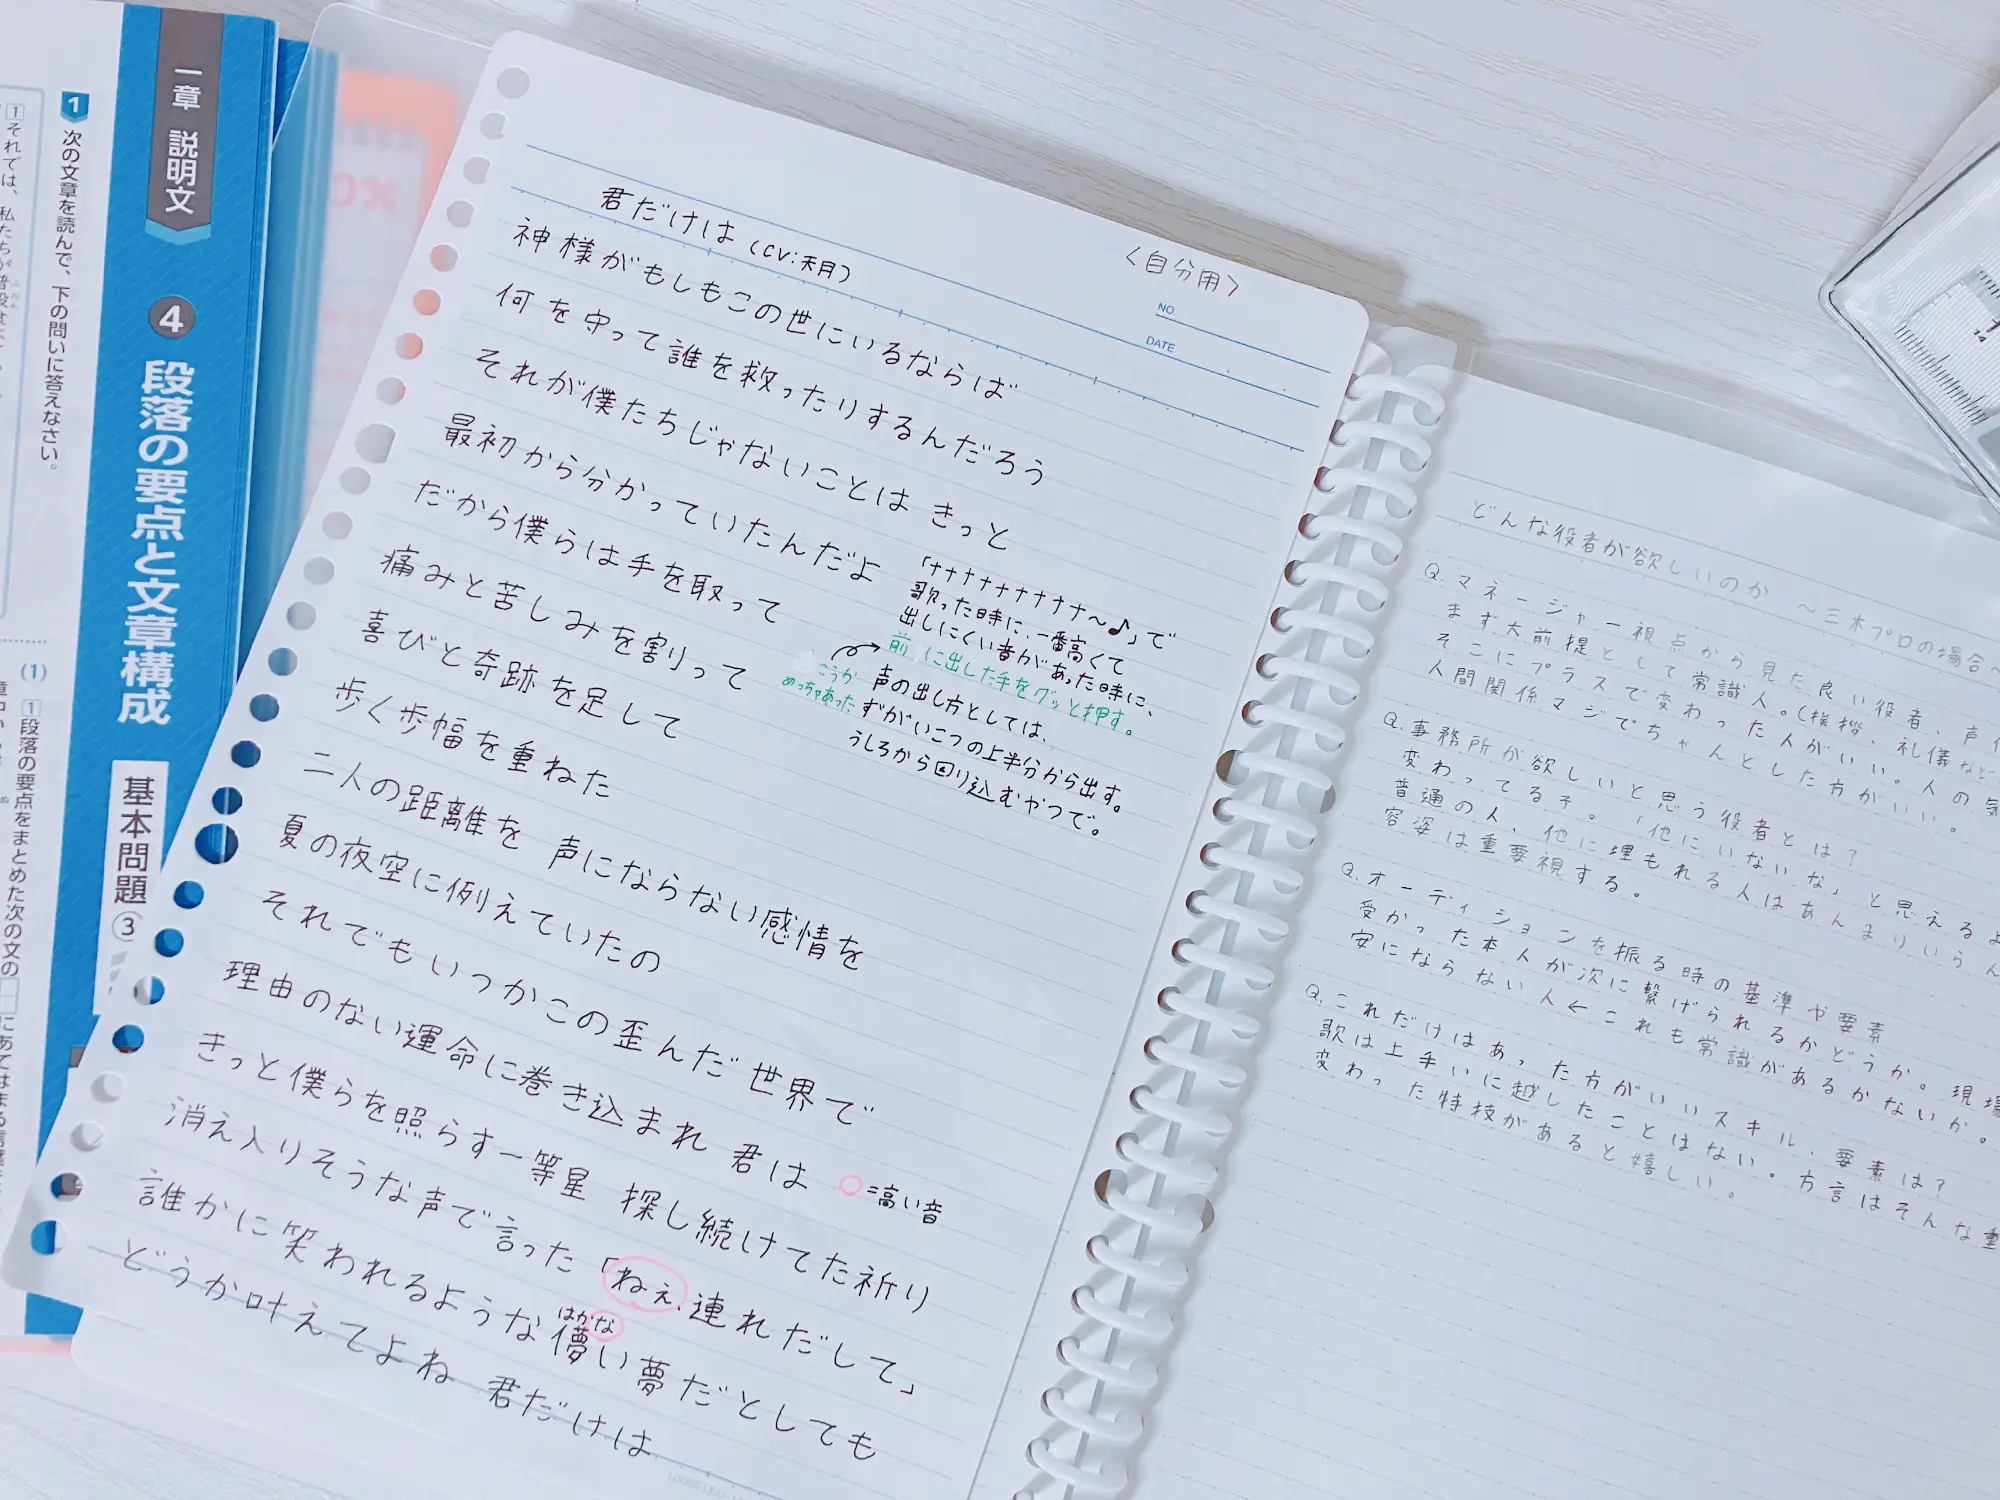 一章 説明文
4 段落の要点と文章構成
基本問題 3
1 次の文章を読んで、下の問いに答えなさい。
1 それでは、私たちが普段
(1) 1 段落の要点をまとめた次の文の
にあてはまる言葉を
君だけは (CV:天月)
〈自分用〉
NO
DATE
神様がもしもこの世にいるならば
何を守って誰を救ったりするんだろう
それが僕たちじゃないことは きっと
最初から分かっていたんだよ
だから僕らは手を取って
痛みと苦しみを割って
喜びと奇跡を足して
歩く歩幅を重ねた
二人の距離を 声にならない感情を
夏の夜空に例えていたの
それでもいつかこの歪んだ世界で
理由のない運命に巻き込まれ 君は
きっと僕らを照らす一等星 探し続けてた祈り
消え入りそうな声で言った「ねぇ、連れだして」
誰かに笑われるような儚い夢だとしても
はかな
どうか叶えてよね 君だけは
「ナナナナナナナ〜♪」で
歌った時に、一番高くて
出しにくい音があった時に、
前に出した手をグッと押す。
こうか
めっちゃあった
声の出し方としては、
ずがいこつの上半分から出す。
うしろから回り込むやつで。
○=高い音
どんな役者が欲しいのか 〜三木プロの場合〜
Q.マネージャー視点から見た良い役者、声
まず大前提として常識人。(挨拶、礼儀など
そこにプラスで変わった人がいい。人の気
人間関係マジでちゃんとした方がいい。
Q.事務所が欲しいと思う役者とは?
変わってる子。「他にいないな」と思えるよ
普通の人、他に埋もれる人はあんまりいらん
容姿は重要視する。
Q.オーディションを振る時の基準や要素
受かった本人が次に繋げられるかどうか。現場
安にならない人←これも常識があるかないか。
Q.これだけはあった方がいいスキル、要素は?
歌は上手いに越したことはない。方言はそんな重
変わった特技があると嬉しい。